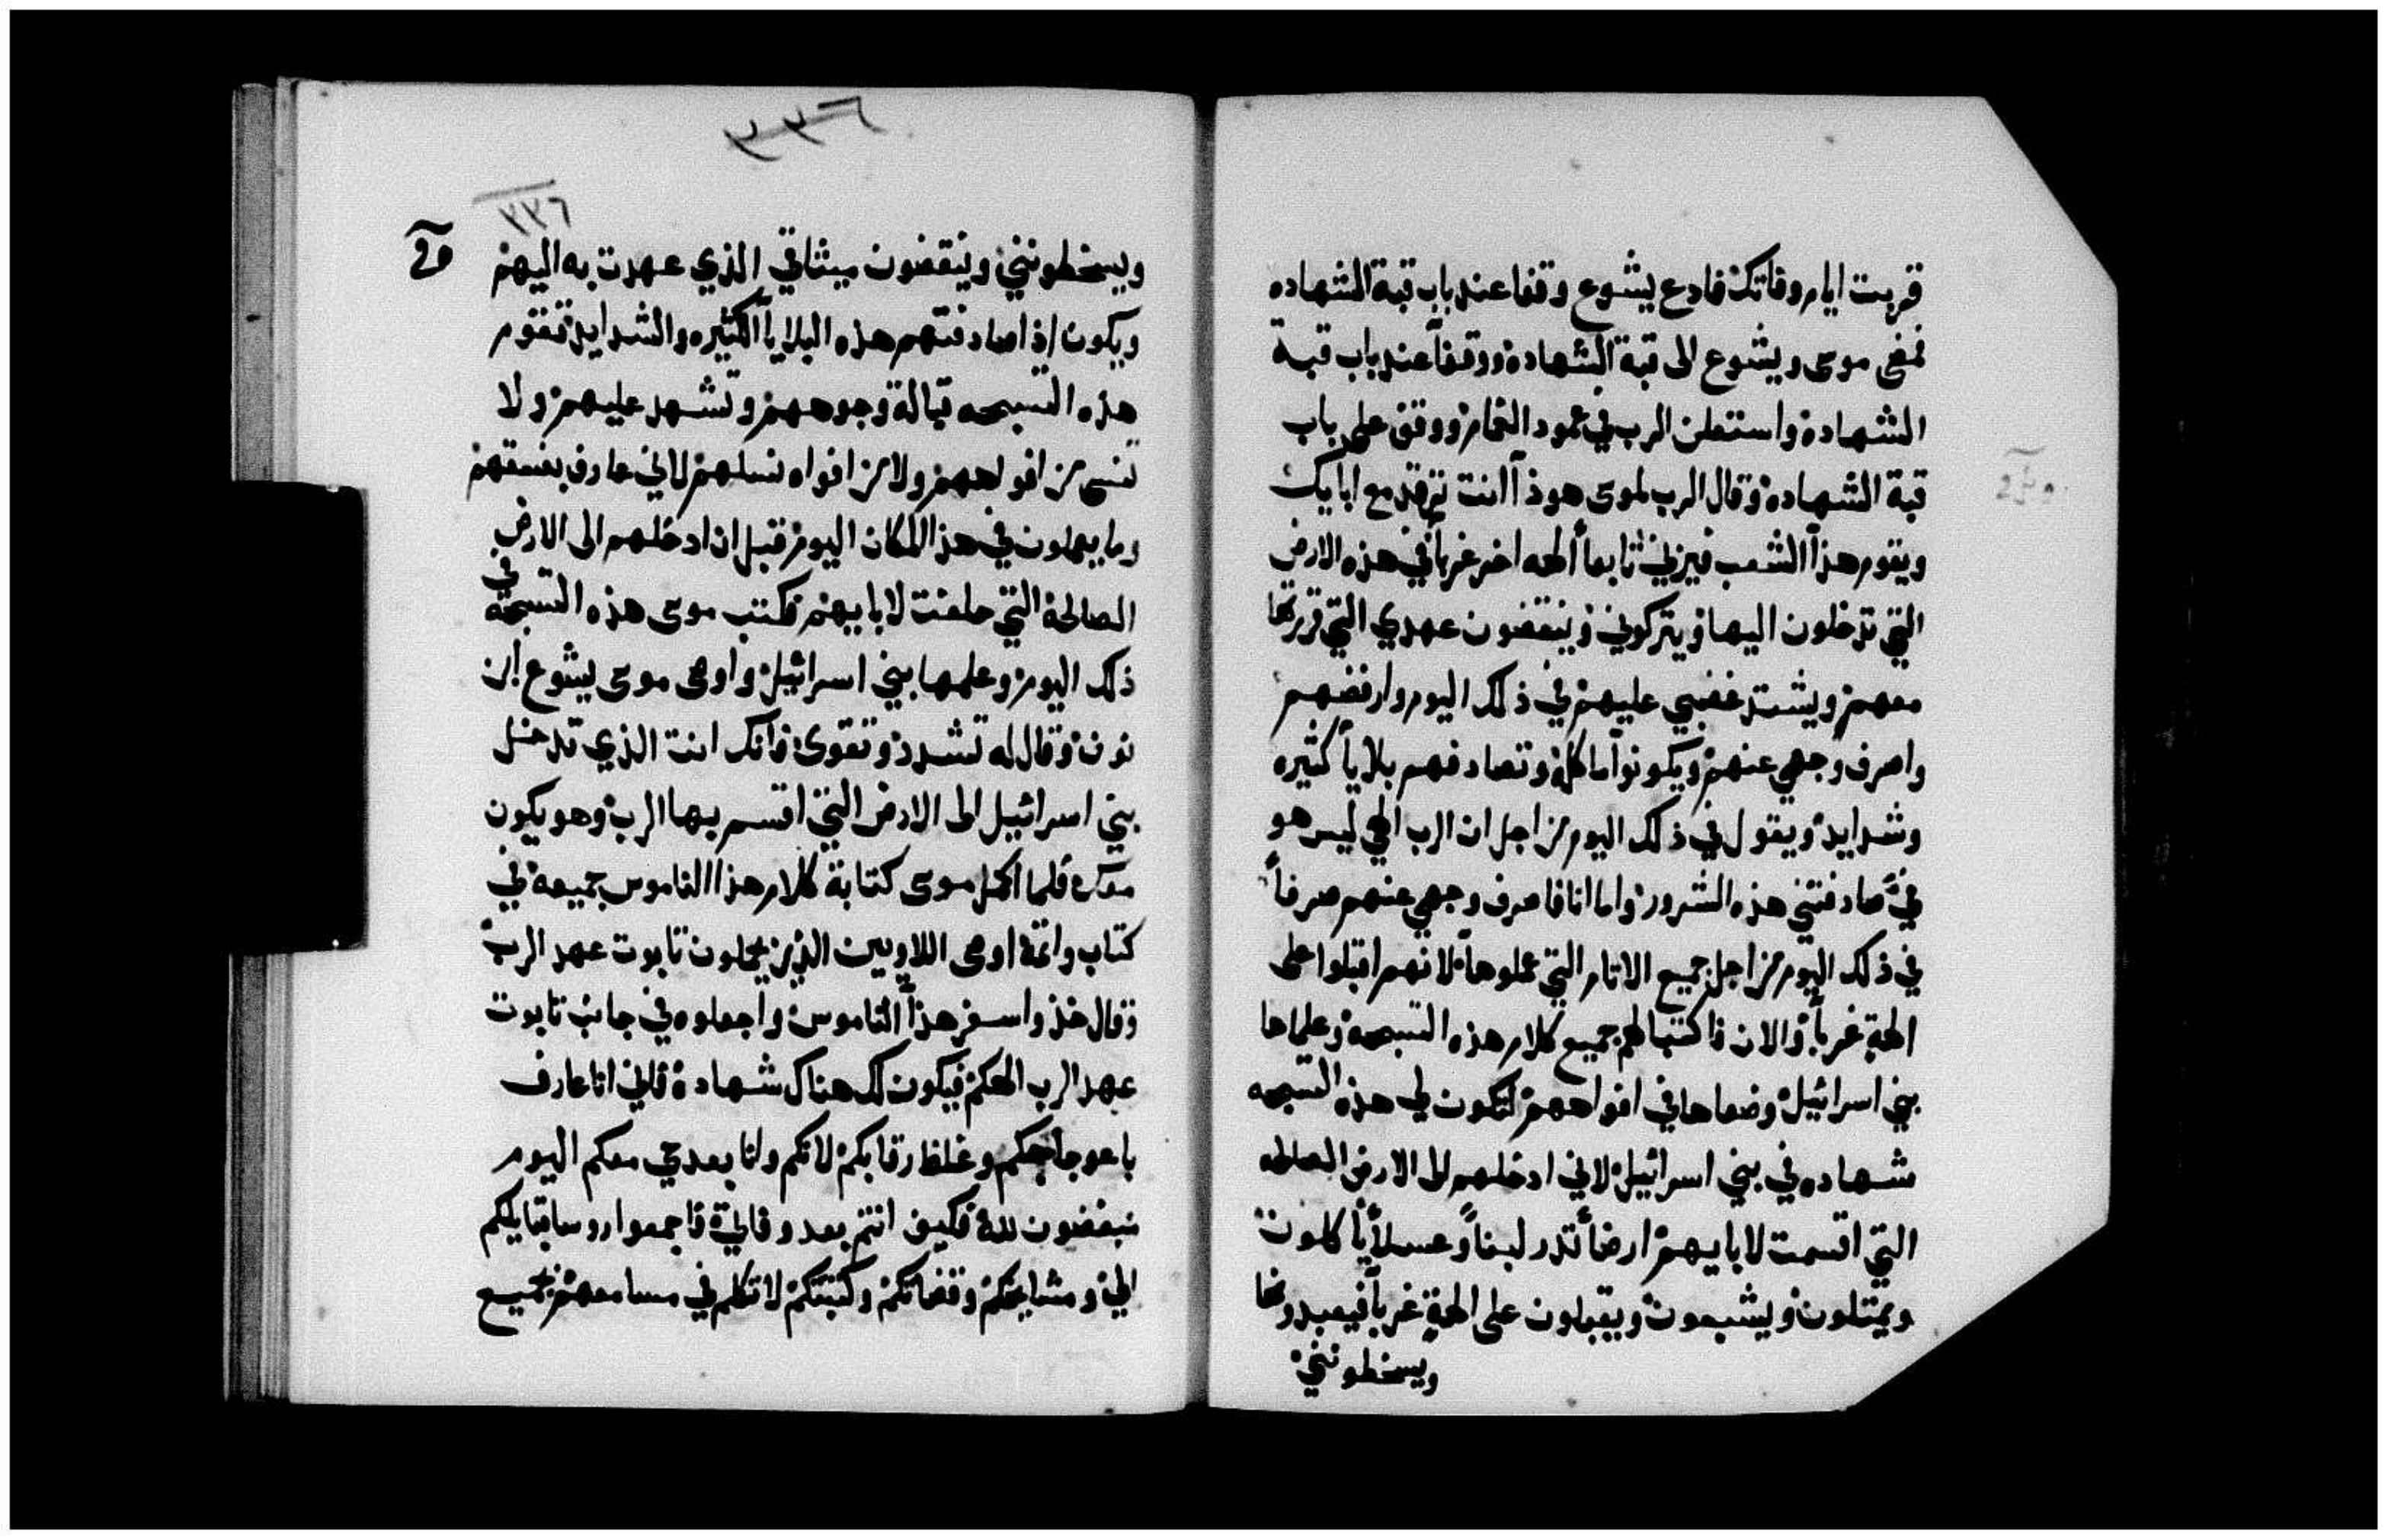 قربت ايام وفاتك فادع يشوع وقفا عند باب قبة الشهاده
فمضى موسى ويشوع الى قبة الشهادة ووقفا عند باب قبة
الشهادة واستعلن الرب في عمود الغمام ووقف على باب
قبة الشهادة وقال الرب لموسى هوذا انت ترقد مع ابايك
ويقوم هذا الشعب فيزني تابعا الهه اخر غربا في هذه الارض
التي تدخلون اليها ويتركوني وينقضون عهدي التي قررتها
معهم ويشتد غضبي عليهم في ذلك اليوم وارفضهم
واصرف وجهي عنهم ويكونوا ماكلة وتصادفهم بلايا كثيره
وشدايد ويقول في ذلك اليوم من اجل ان الرب الهي ليس هو
في صادفتني هذه الشرور واما انا فاصرف وجهي عنهم صرفاً
في ذلك اليوم من اجل جميع الاثام التي عملوها لانهم اقبلوا على
الهة غربا والان فاكتبا لهم جميع كلام هذه التسبحة وعلماها
بني اسرائيل وضعاها في افواههم لتكون لي هذه التسبحه
شهاده في بني اسرائيل لاني ادخلهم الى الارض الصالحه
التي اقسمت لابايهم ارضاً تدر لبناً وعسلاً ياكلون
ويمتلون ويشبعون ويقبلون على الهة غربا فيعبدونها
ويسخطونني
٢٣٣
٢٣٣
ويسخطونني وينقضون ميثاقي الذي عهدت به اليهم
ويكون اذ اصادفتهم هذه البلايا الكثيره والشدايد تقوم
هذه التسبحه قبالة وجوههم وتشهد عليهم ولا
تنسى من افواههم ولا من افواه نسلهم لاني عارف بفسقهم
وما يعملون في هذا المكان اليوم قبل ان ادخلهم الى الارض
الصالحة التي حلفت لابايهم فكتب موسى هذه التسبحة في
ذلك اليوم وعلمها بني اسرائيل واوصى موسى يشوع ابن
نون وقال له تشدد وتقوى فانك انت الذي تدخل
بني اسرائيل الى الارض التي اقسم بها الرب وهو يكون
معك فلما اكمل موسى كتابة كلام هذا الناموس جميعه في
كتاب واتمه اوصى اللاويين الذين يحملون تابوت عهد الرب
وقال خذوا سفر هذا الناموس واجعلوه في جانب تابوت
عهد الرب الهكم فيكون لك هناك شهادة فاني انا عارف
باعوجاجكم وغلظ رقابكم لانكم وانا بعد حي معكم اليوم
مبغضون لله فكيف انتم بعد وفاتي فاجمعوا روسا قبايلكم
الي ومشايخكم وقضاتكم وكتبتكم لاتكلم في مسامعهم بجميع